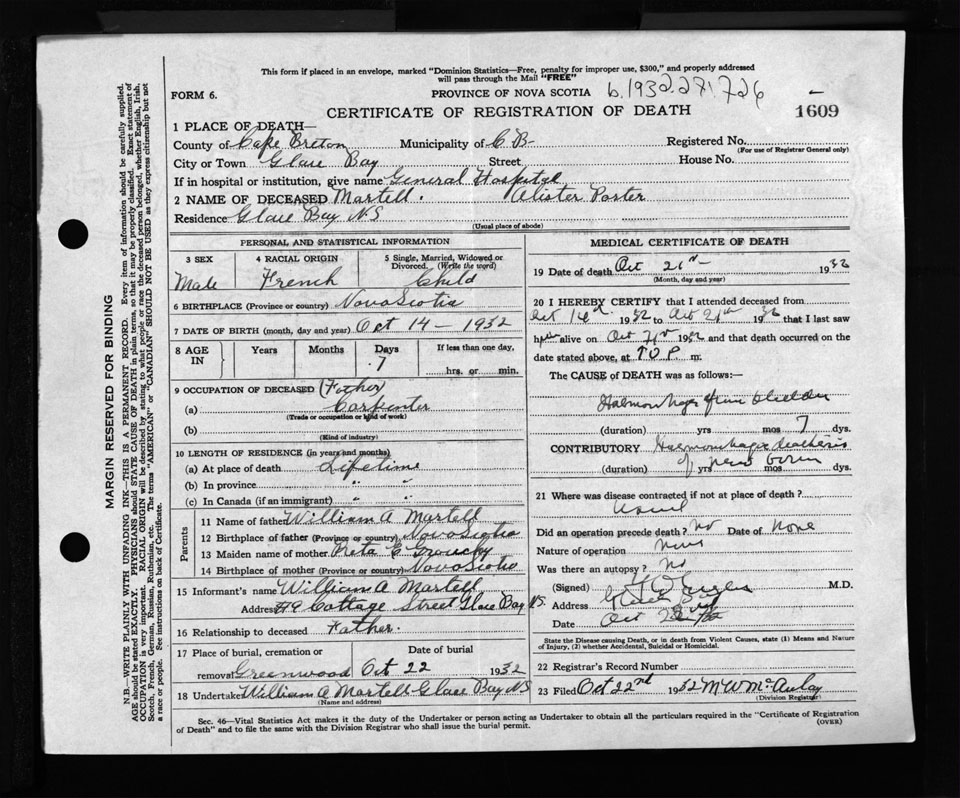 This form if placed in an envelope, marked "Dominion Statistics—Free, penalty for improper use, $300," and properly addressed
will pass through the Mail "FREE"
FORM 6. PROVINCE OF NOVA SCOTIA b.1932.271.726
CERTIFICATE OF REGISTRATION OF DEATH 1609
1 PLACE OF DEATH—
County of Cape Breton Municipality of C B- Registered No.
(For use of Registrar General only)
City or Town Glace Bay Street House No.
If in hospital or institution, give name General Hospital
2 NAME OF DECEASED Martell. Alister Foster
Residence Glace Bay NS
(Usual place of abode)
PERSONAL AND STATISTICAL INFORMATION
3 SEX 4 RACIAL ORIGIN 5 Single, Married, Widowed or
Divorced. (Write the word)
Male French Child
6 BIRTHPLACE (Province or country) Nova Scotia
7 DATE OF BIRTH (month, day and year) Oct 14 - 1932
8 AGE IN Years Months Days If less than one day,
7 hrs. or min.
9 OCCUPATION OF DECEASED (Father)
(a) Carpenter
(Trade or occupation or kind of work)
(b)
(Kind of industry)
10 LENGTH OF RESIDENCE (in years and months)
(a) At place of death Lifetime
(b) In province " "
(c) In Canada (if an immigrant) " "
Parents
11 Name of father William A Martell
12 Birthplace of father (Province or country) Nova Scotia
13 Maiden name of mother E
14 Birthplace of mother (Province or country) Nova Scotia
15 Informant's name William A Martell
Address 49 Cottage Street Glace Bay NS.
16 Relationship to deceased Father.
17 Place of burial, cremation or Date of burial
removal Greenwood Oct 22 1932
18 Undertaker William A Martell Glace Bay NS
(Name and address)
MEDICAL CERTIFICATE OF DEATH
19 Date of death Oct 21st 1932
(Month, day and year)
20 I HEREBY CERTIFY that I attended deceased from
Oct 14th 1932 to Oct 21st 1932 that I last saw
h alive on Oct 21st 1932 and that death occurred on the
date stated above, at P m.
The CAUSE of DEATH was as follows:—
(duration) yrs mos 7 dys.
CONTRIBUTORY
of new born
(duration) yrs mos dys.
21 Where was disease contracted if not at place of death?
Did an operation precede death? No Date of None
Nature of operation None
Was there an autopsy? No
(Signed) M.D.
Address Glace Bay
Date Oct
State the Disease causing Death, or in death from Violent Causes, state (1) Means and Nature
of Injury, (2) whether Accidental, Suicidal or Homicidal.
22 Registrar's Record Number
23 Filed Oct 22nd 1932 M W McAulay
(Division Registrar)
Sec. 46—Vital Statistics Act makes it the duty of the Undertaker or person acting as Undertaker to obtain all the particulars required in the "Certificate of Registration
of Death" and to file the same with the Division Registrar who shall issue the burial permit. (OVER)
MARGIN RESERVED FOR BINDING
N.B.—WRITE PLAINLY WITH UNFADING INK—THIS IS A PERMANENT RECORD. Every item of information should be carefully supplied.
AGE should be stated EXACTLY. PHYSICIANS should STATE CAUSE OF DEATH in plain terms, so that it may be properly classified. Exact statement of
OCCUPATION is very important. RACIAL ORIGIN will be described by stating to what people or race the deceased person belonged, whether English, Irish,
Scotch, French, German, Russian, Ruthenian, etc. The terms "AMERICAN" or "CANADIAN" SHOULD NOT BE USED as they express citizenship but not
a race or people. See instructions on back of Certificate.